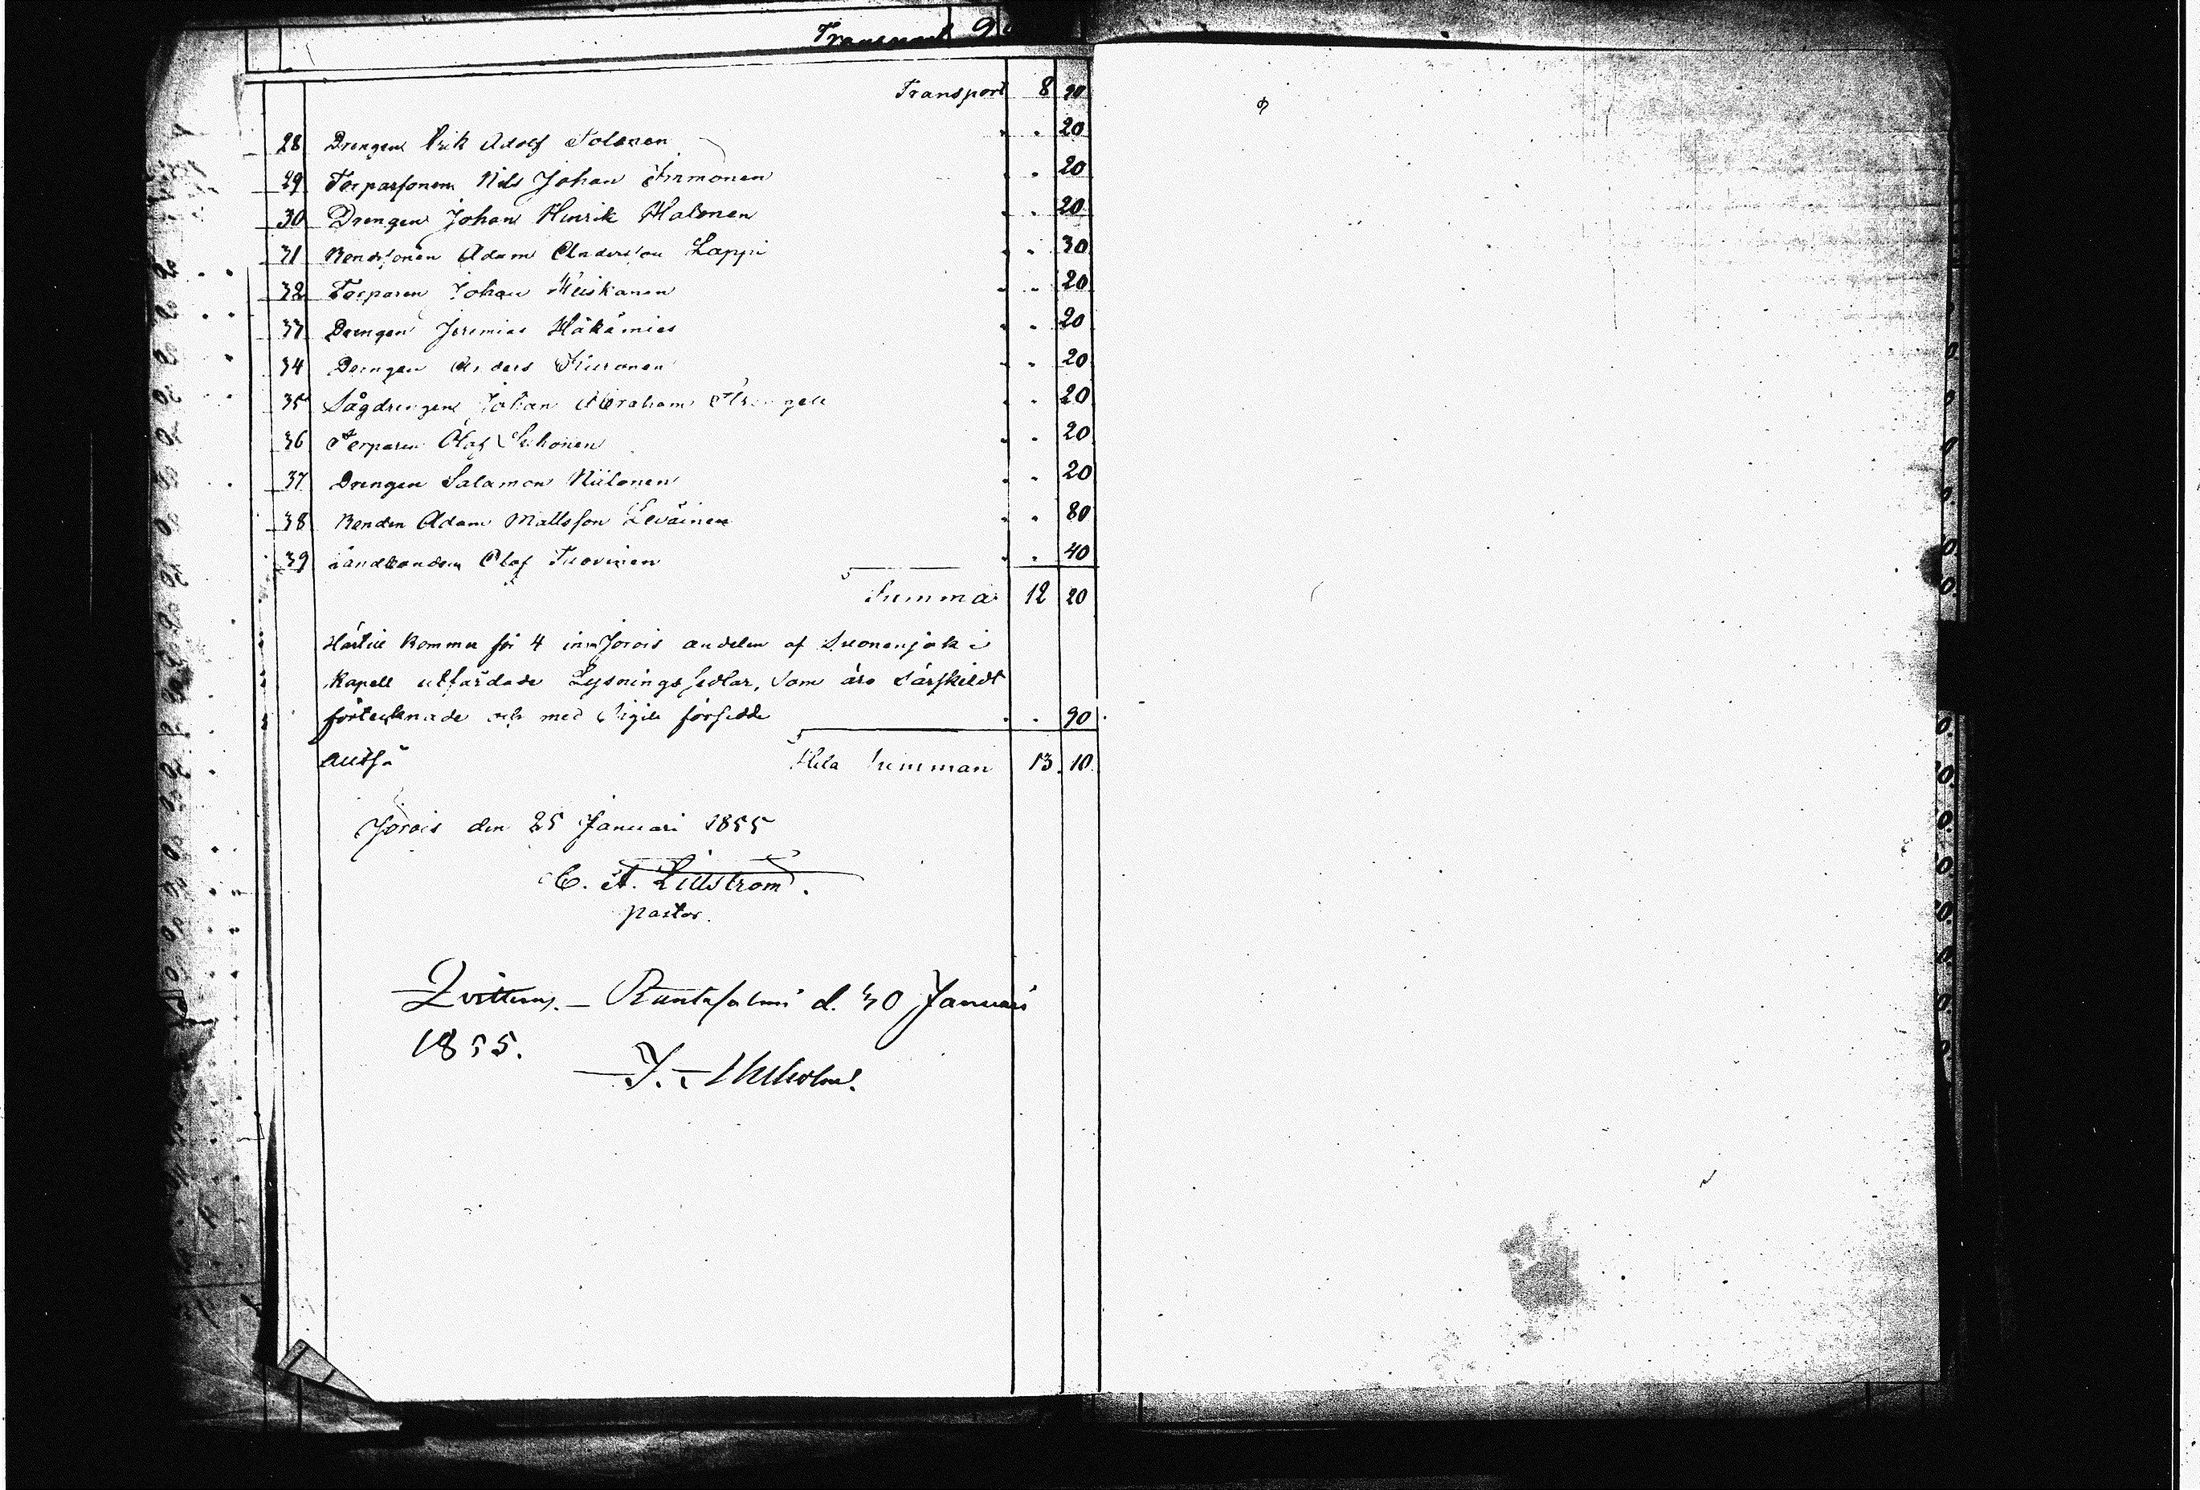 Transport 9
Transport 8 90
28 Drengen Erik Adolf Tolanen . . 20
29 Torparsonen Nils Johan Immonen . . 20
30 Drengen Johan Henrik Halonen . . 20
31 Bondesonen Adam Andersson Lappi . . 30
32 Torparen Johan Heiskanen . . 20
33 Drengen Jeremias Häkämies . . 20
34 Drengen Anders Kuronen . . 20
35 Sågdrengen Johan Abraham . . 20
36 Torparen Olof Suhonen . . 20
37 Drengen Salamon Niilonen . . 20
38 Bonden Adam Mattsson Leväinen . . 80
39 Landbonden Olof Tuovinen . . 40
Summa 12 20
Härtill kommer för 4 inom Jorois andelen af Suonenjoki
Kapell utfärdade Lysnings sedlar, som äro särskildt
förtecknade och med Sigill försedde . . 90
Alltså Hela Summan 13 10
Jorois den 25 Januari 1855
C. A. Lillström.
pastor.
Qvitteras. – Rantasalmi d. 30 Januari
1855.